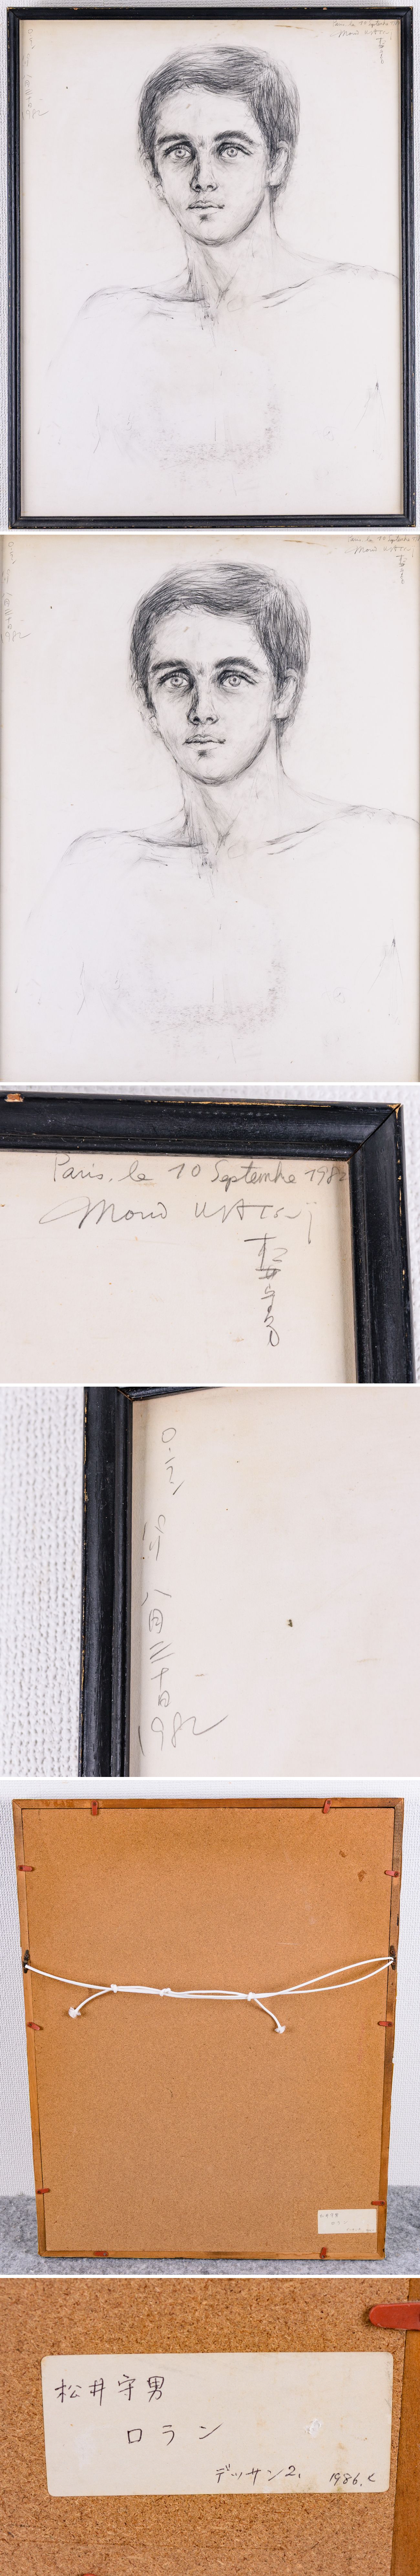 Paris, le 10 Septembre 1982
Morio MATSUi
松井守男
ロラン
八月二十日
1982
松井守男
ロラン
デッサン2, 1986.